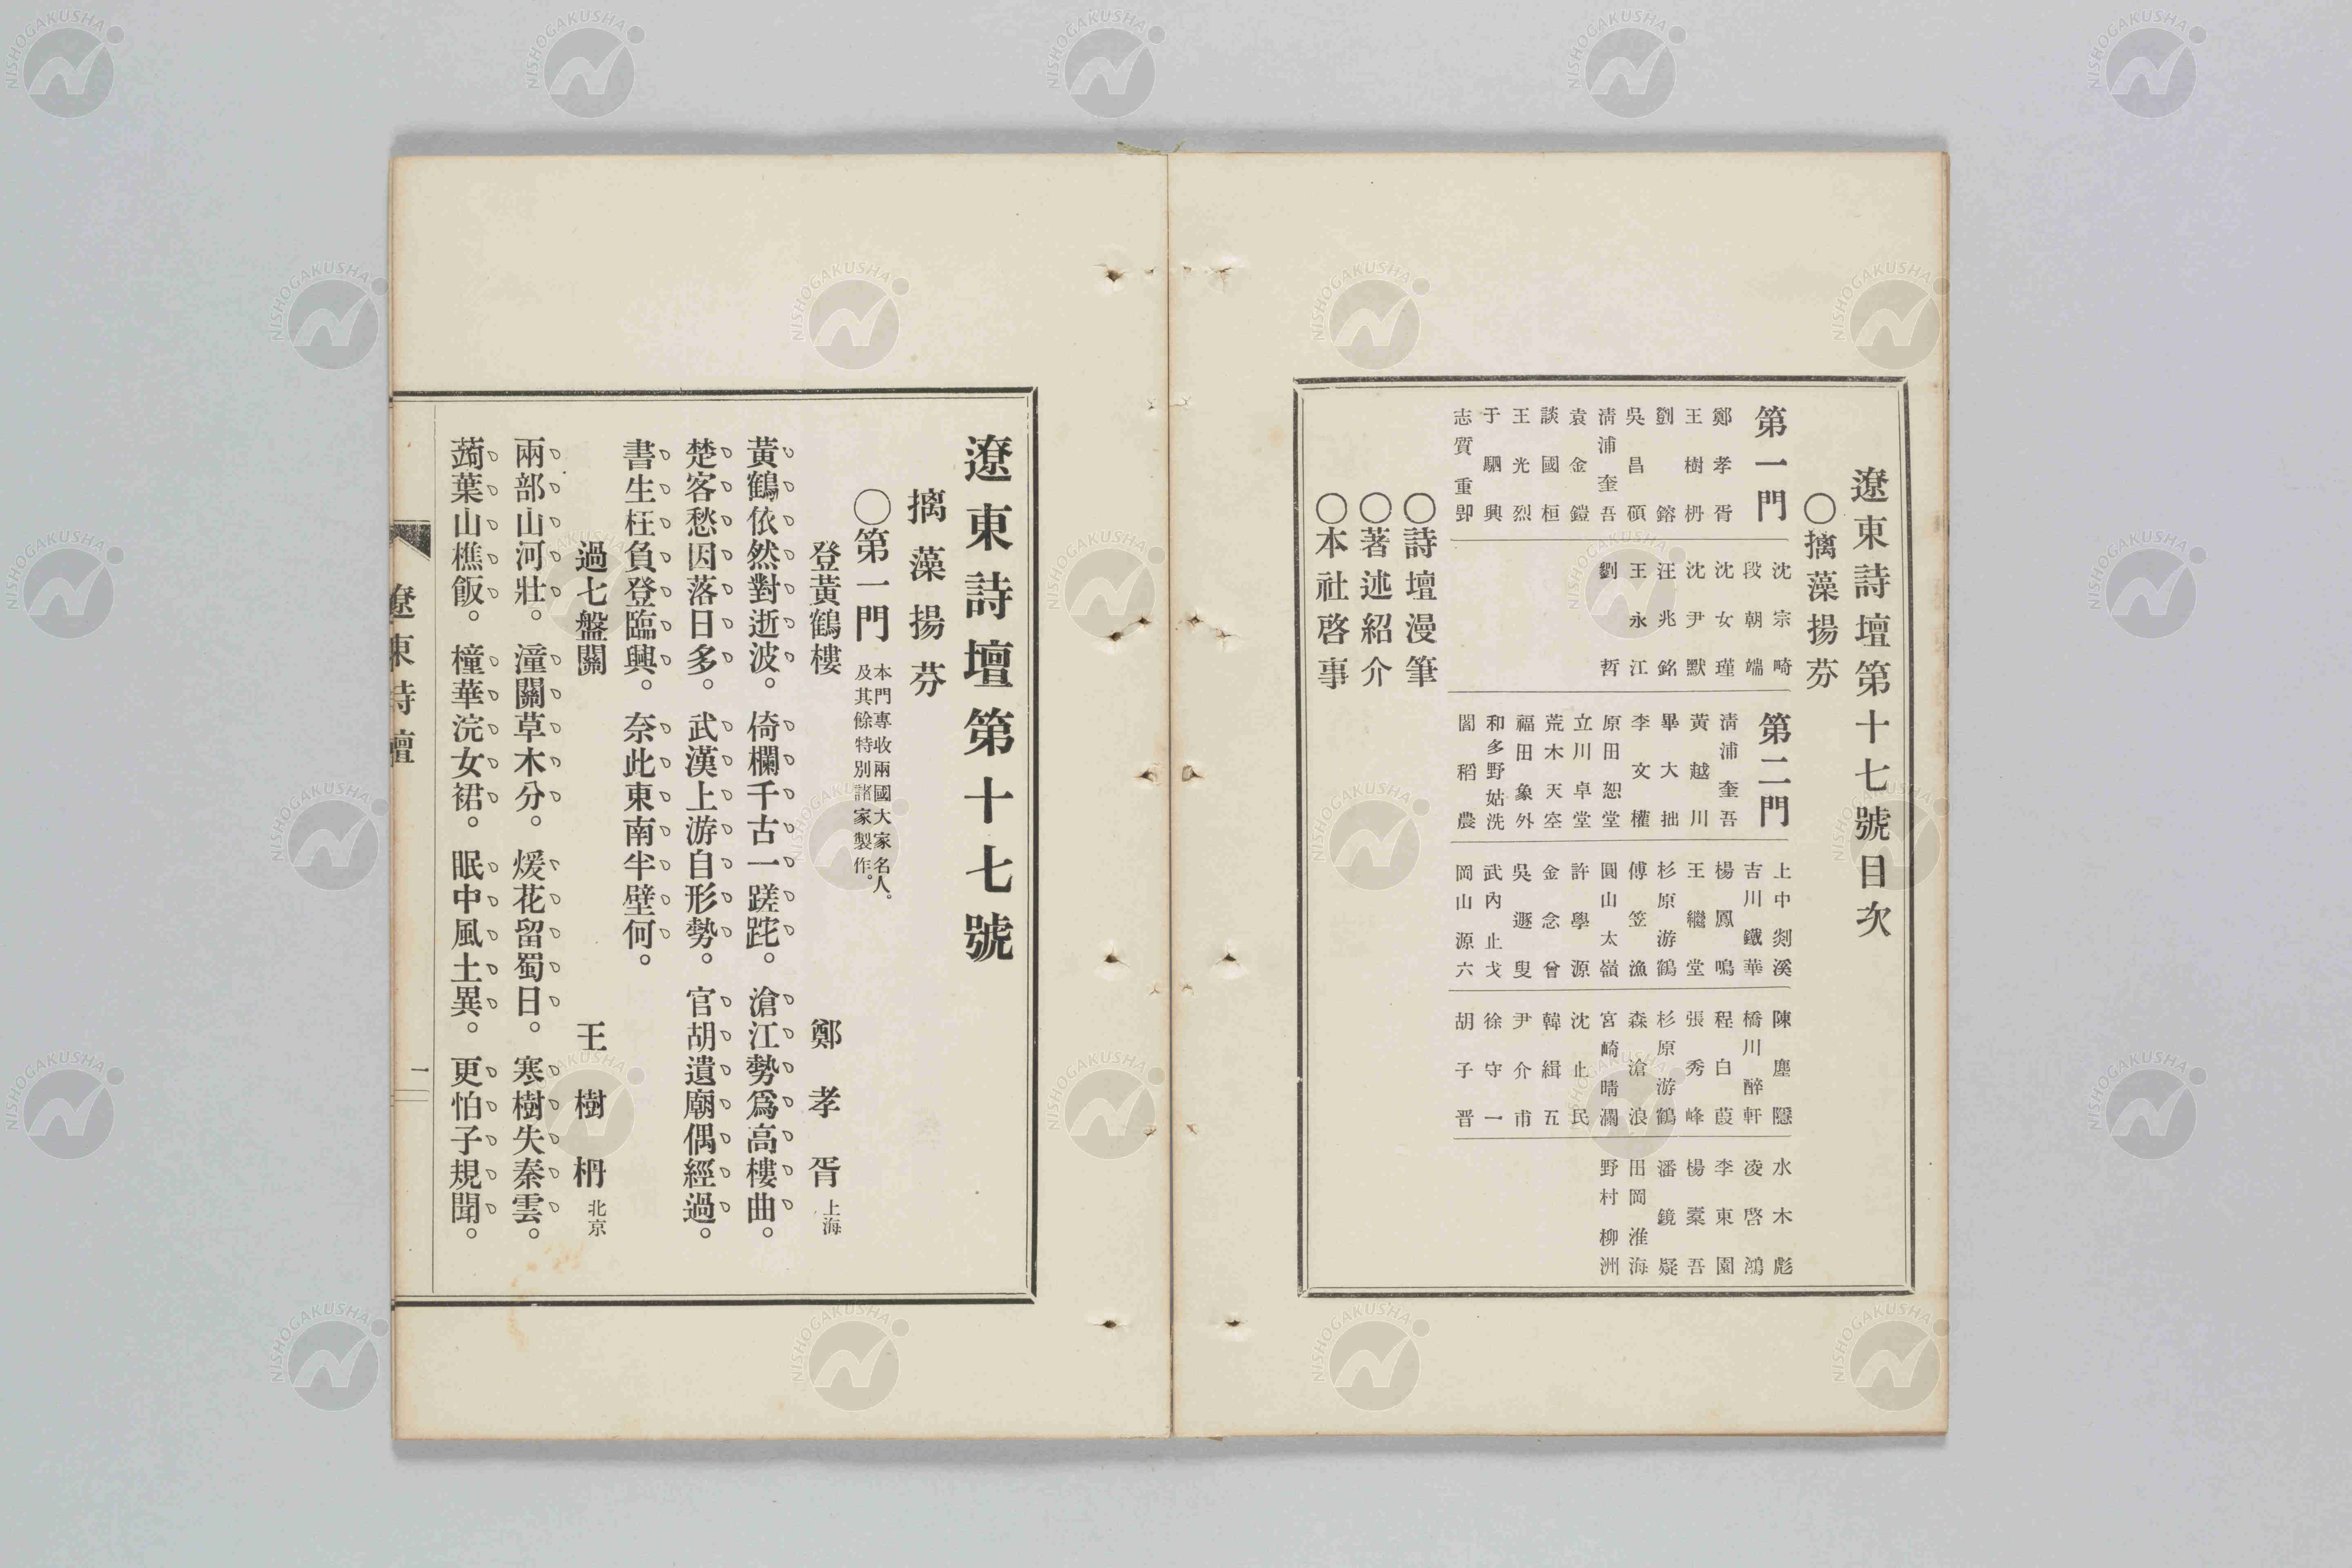 遼東詩壇第十七號目次
〇摛藻揚芬
第一門
鄭孝胥
王樹枏
劉鎔
吳昌碩
淸浦奎吾
袁金鎧
談國桓
王光烈
于駟興
志賀重昂
沈宗畸
段朝端
沈女瑾
沈尹默
汪兆銘
王永江
劉哲
第二門
淸浦奎吾
黃越川
畢大拙
李文權
原田恕堂
立川卓堂
荒木天空
福田象外
和多野姑洗
閻稻農
上中剡溪
吉川鐵華
楊鳳鳴
王繼堂
杉原游鶴
傅笠漁
圓山太嶺
許學源
金念曾
吳遯叟
武內止戈
岡山源六
陳塵隱
橋川醉軒
程白葭
張秀峰
杉原游鶴
森滄浪
宮崎晴瀾
沈止民
韓緝五
尹介甫
徐守一
胡子晋
水木彪
凌啓鴻
李東園
楊槖吾
潘鏡疑
田岡淮海
野村柳洲
〇詩壇漫筆
〇著述紹介
〇本社啓事
遼東詩壇第十七號
摛藻揚芬
〇第一門 本門專收兩國大家名人。
及其餘特別諸家製作。
登黃鶴樓 鄭孝胥 上海
黃鶴依然對逝波。倚欄千古一蹉跎。滄江勢爲高樓曲。
楚客愁因落日多。武漢上游自形勢。官胡遺廟偶經過。
書生枉負登臨興。奈此東南半壁何。
過七盤關 王樹枏 北京
兩部山河壯。潼關草木分。煖花留蜀日。寒樹失秦雲。
蒟葉山樵飯。橦華浣女裙。眠中風土異。更怕子規聞。
遼東詩壇
一
NISHOGAKUSHA